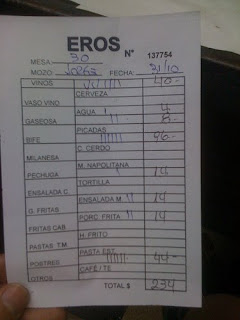 EROS
N° 137754
MESA: 30
MOZO: FECHA: 31/10
VINOS
CERVEZA
VASO VINO
AGUA 4
GASEOSA 8-
PICADAS
BIFE 46-
C. CERDO
MILANESA
M. NAPOLITANA
PECHUGA 14
TORTILLA
ENSALADA C.
ENSALADA M. 14
G. FRITAS
PORC. FRITA 14
FRITAS CAB
H. FRITO
PASTAS T.M.
PASTA EST.
POSTRES 44-
CAFÉ / TE
OTROS
TOTAL $ 234